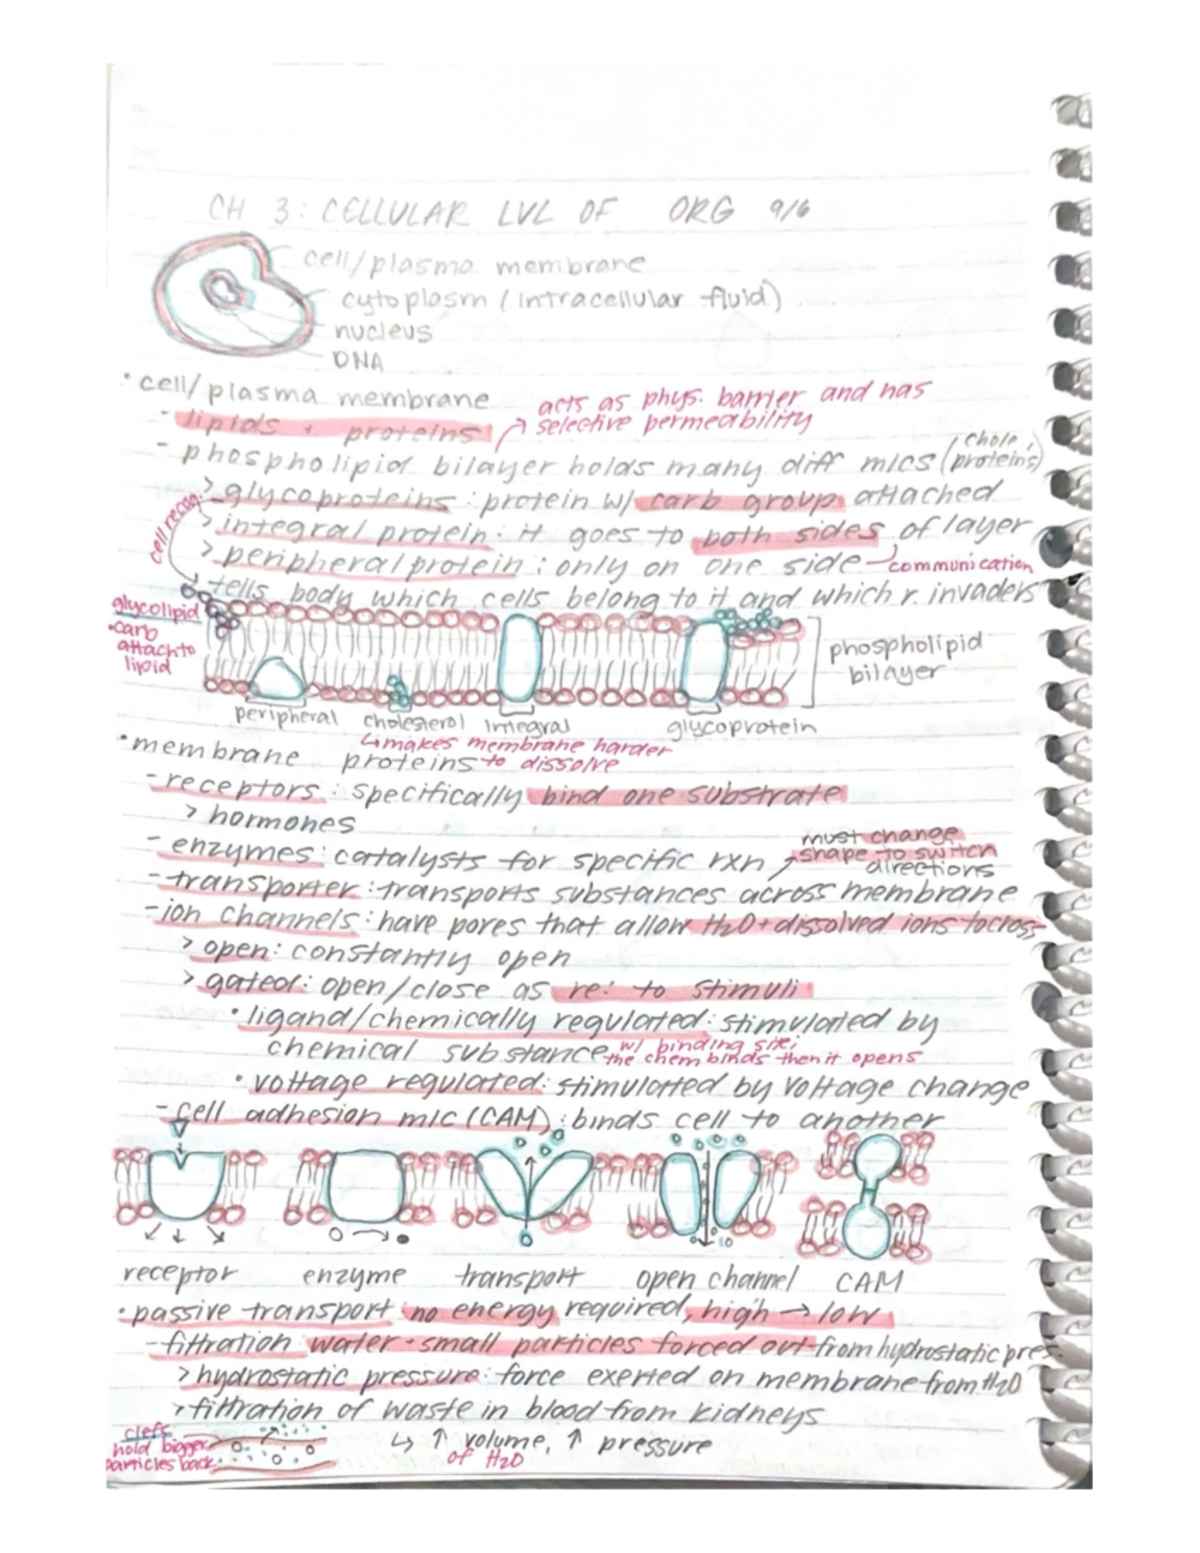 CH 3: CELLULAR LVL OF ORG 9/6
cell/plasma membrane
cytoplasm (intracellular fluid)
nucleus
DNA
• cell/plasma membrane
acts as phys. barrier and has
selective permeability
- lipids + proteins
- phospholipid bilayer holds many diff mlcs (chole., proteins)
> glycoproteins: protein w/ carb group attached
> integral protein: it goes to both sides of layer
> peripheral protein: only on one side
communication
cell recog.
tells body which cells belong to it and which r. invaders
glycolipid
•carb
attach to
lipid
phospholipid
bilayer
peripheral cholesterol integral glycoprotein
↳makes membrane harder
to dissolve
• membrane proteins
- receptors: specifically bind one substrate
> hormones
- enzymes: catalysts for specific rxn
must change
shape to switch
directions
- transporter: transports substances across membrane
- ion channels: have pores that allow H2O + dissolved ions to cross
> open: constantly open
> gated: open/close as re: to stimuli
• ligand/chemically regulated: stimulated by
chemical substance
w/ binding site;
the chem binds then it opens
• voltage regulated: stimulated by voltage change
- cell adhesion mlc (CAM): binds cell to another
receptor enzyme transport open channel CAM
• passive transport: no energy required, high → low
- filtration: water + small particles forced out from hydrostatic pres.
> hydrostatic pressure: force exerted on membrane from H2O
> filtration of waste in blood from kidneys
↳ ↑ volume, ↑ pressure
of H2O
clefs
hold bigger
particles back